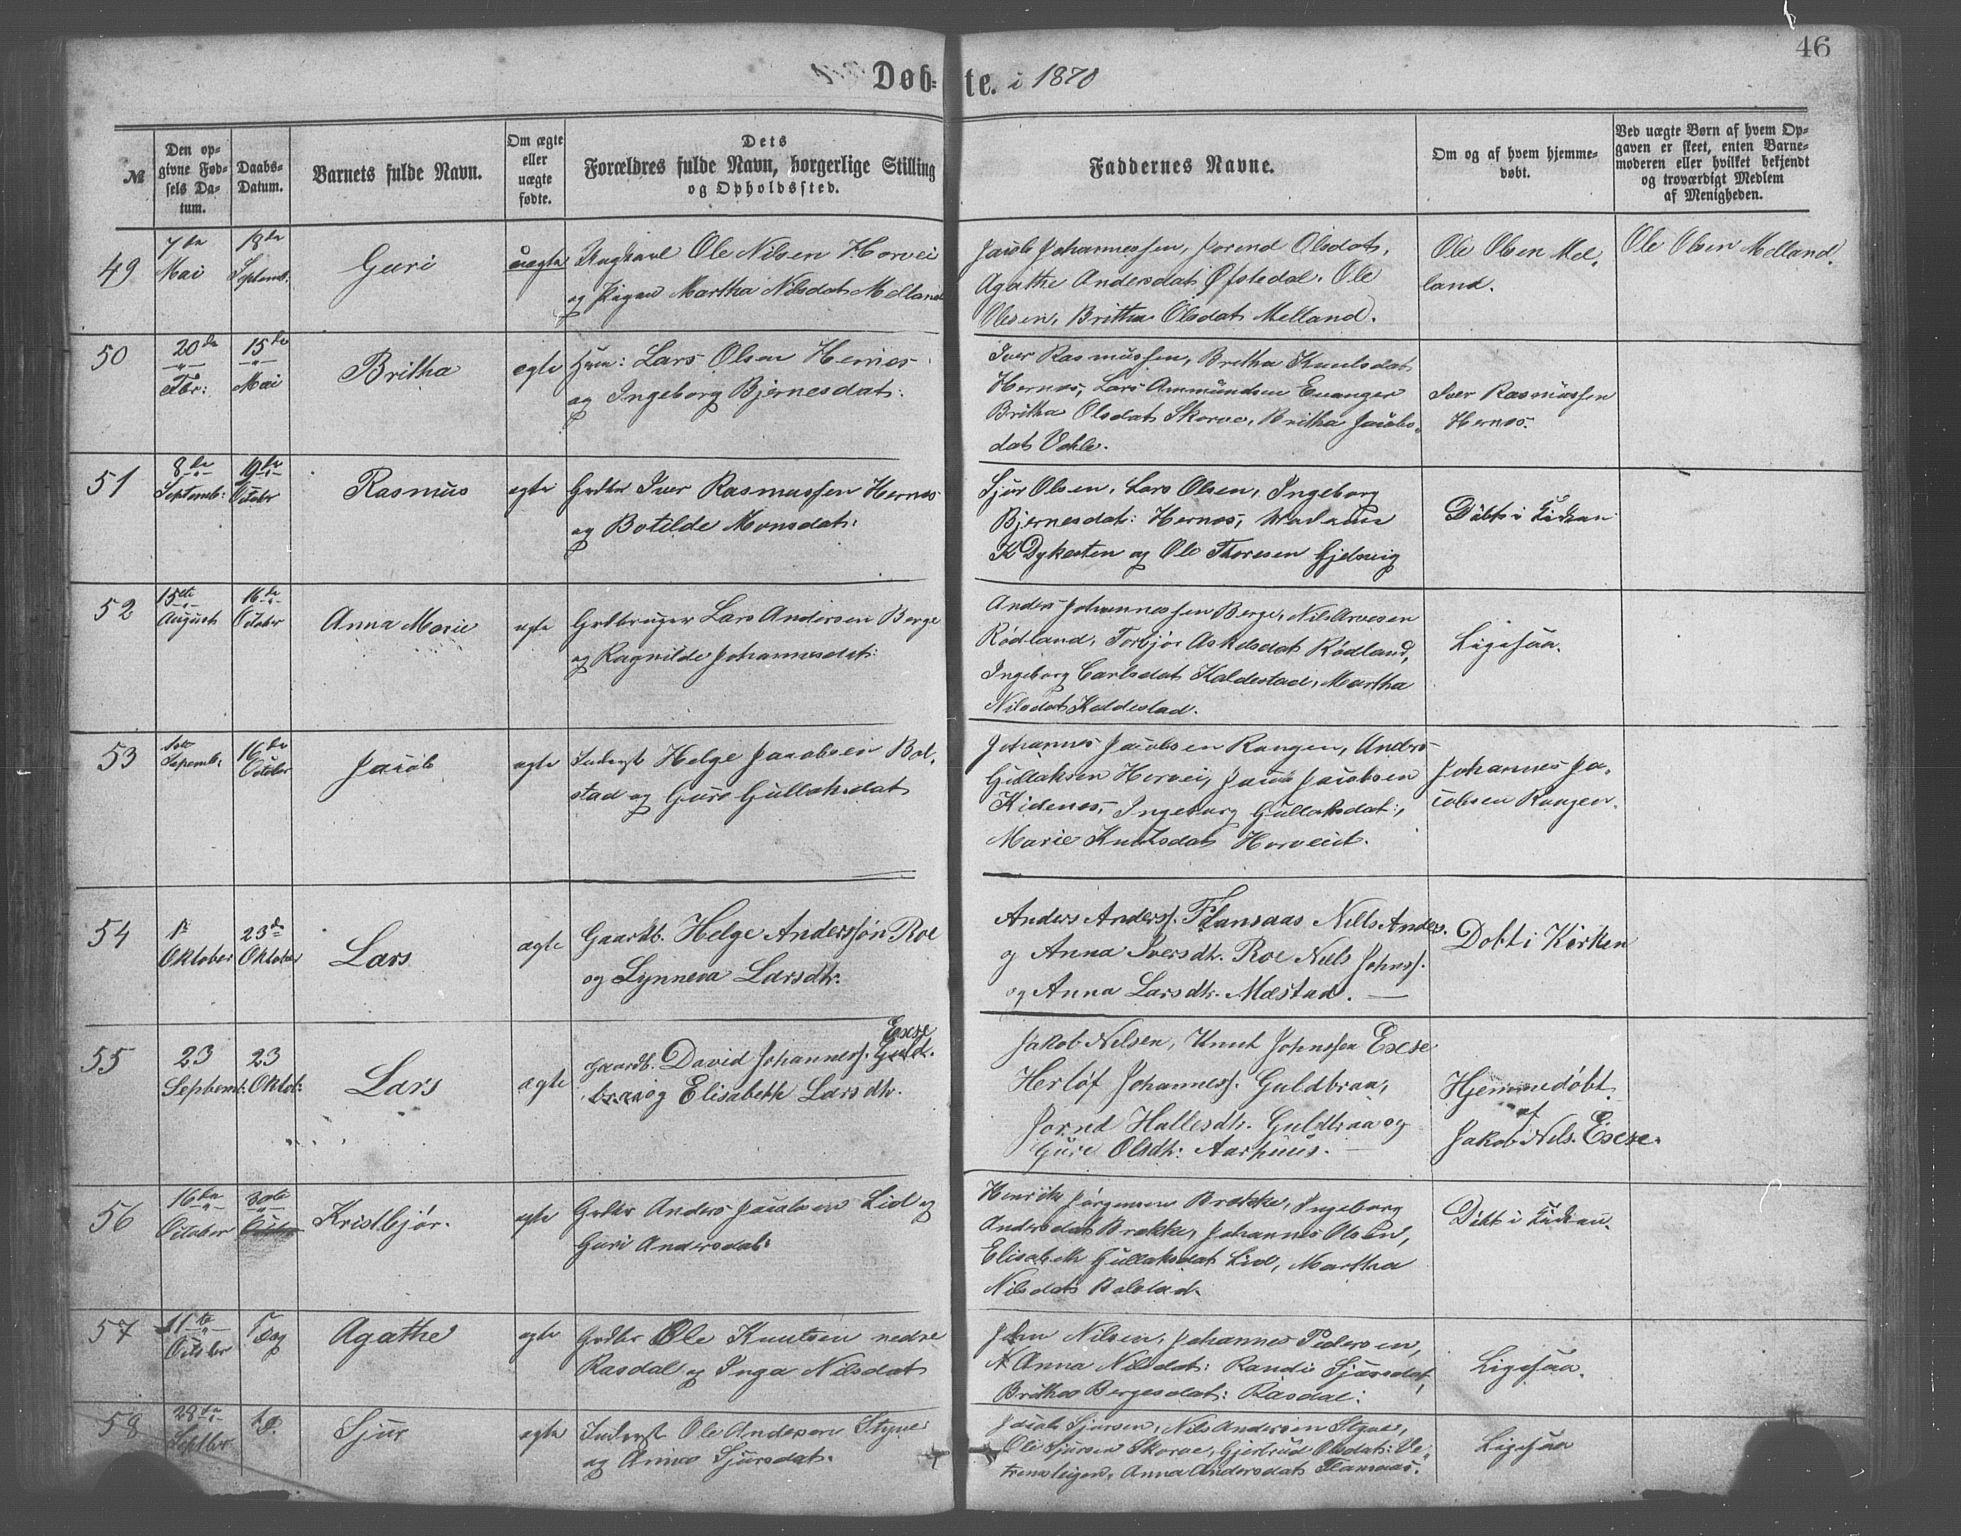 46
Døbte. i 1870
№
Den opgivne Fødsels Datum.
Daabs-Datum.
Barnets fulde Navn.
Om ægte eller uægte fødte.
Dets Forældres fulde Navn, borgerlige Stilling og Opholdssted.
Faddernes Navne.
Om og af hvem hjemmedøbt.
Ved uægte Børn af hvem Opgaven er skeet, enten Barnemoderen eller hvilket bekjendt og troværdigt Medlem af Menigheden.
49
7de Mai
18de Septemb:
Guri
uægte
Ungkarl Ole Nilsen Horvei
og Pigen Martha Nilsdat Melland
Jacob Johannessen, Jorend Olsdat,
Agathe Andersdat Øfstedal. Ole
Olsen, Britha Olsdat Melland.
Ole Olsen Mel-
land.
Ole Olsen Melland.
50
20de Fbr:
15de Mai
Britha
egte
Lars Olsen Hernes
og Ingeborg Bjernesdat:
Iver Rasmussen, Britha Knutsdat
Hernes, Lars Ammundsen Evanger
Britha Olsdat Skorve, Britha Jacobs-
dat
Iver Rasmussen
Hernes.
51
8de Septemb:
19de October
Rasmus
egte
Grdbr Iver Rasmussen Hernes
og Botilde Monsdat:
Sjur Olsen, Lars Olsen, Ingeborg
Bjernesdat: Hernes, Madame
K Dykesten og Ole Thoresen Gjelsvig
Døbt i Kirken
52
15de August
16de October
Anna Marie
egte
Grdbruger Lars Andersen Berge
og Ragnilde Johannesdat:
Anders Johannessen Berge, Nils Arvesen
Rødland, Torbjør Askelsdat Rødland,
Ingeborg Carlsdat Kaldestad, Martha
Nilsdat Kaldestad.
Ligesaa.
53
Septemb:
16de October
Jacob
egte
Inderst Helge Jacobsen Bol-
stad og Guro Gullaksdat
Johannes Jacobsen Rangen, Anders
Gullaksen Horvei, Jacob Jacobsen
Kidenes, Ingeborg Gullaksdat:,
Marie Knutsdat Horveit.
Johannes Ja-
cobsen Rangen.
54
1te Oktober
23de Oktober
Lars
ægte
Gaardb. Helge Anderssøn Roe
og Synneva Larsdtr.
Anders Anderss. Flamsaas Nels Anders.
og Anna Iversdtr. Roe Niels Johnss.
og Anna Larsdtr. Mæstad.
Døbt i Kirken
55
23 Septemb:
23 Oktob:
Lars
ægte
Exse
Gaardb. David Johanness. Guld-
braa og Elisabeth Larsdtr.
Jakob Nilsen, Knut Johnssen Exse
Herlof Johanness. Guldbraa,
Jornd Hallesdtr. Guldbraa og
Guri Olsdtr: Aarhuus.
Hjemmedøbt
af
Jakob Nils. Exse.
56
16de October
30te October
Kristbjør.
egte
Grdbr Anders Jacobsen Lid og
Guri Andersdat:
Henrik Jørgensen Brække, Ingeborg
Andersdat Brække, Johannes Olsen,
Elisabeth Gullaksdat Lid, Martha
Nilsdat Bolstad.
Døbt i Kirken.
57
11te October
s Dag
Agathe
egte
Grdbr Ole Knutsen nedre
Rasdal og Inga Nilsdat
John Nilsen, Johannes Pedersen,
Anna Nilsdat: Randi Sjursdat,
Britha Bergesdat: Rasdal:
Ligesaa.
58
28de Septbr
Sjur
egte
Inderst Ole Andersen Styve
og Anna Sjursdat.
Jacob Sjursen, Nils Andersen Styve,
Ole Sjursen Skorve, Gjertrud Olsdat:
Anna Andersdat Flamsaas.
Ligesaa